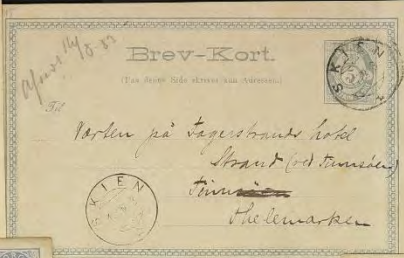 Brev-Kort.
(Paa denne Side skrives kun Adressen.)
Til
Værten på Fagerstrands hotel
Strand (ved Tinnsøen)
Thelemarken
SKIEN
SKIEN